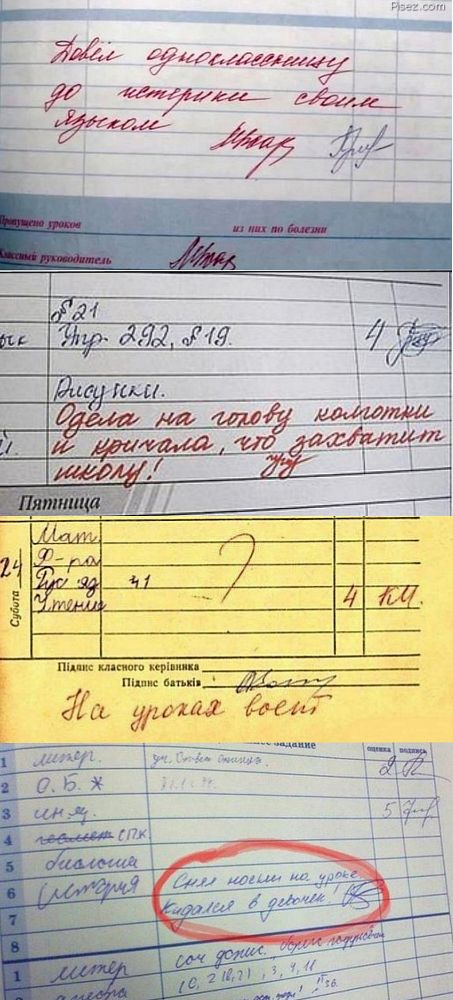 Pisez.com
Довёл одноклассницу
до истерики своим
языком
Пропущено уроков из них по болезни
Классный руководитель
§21
Упр. 292, §19. 4
Рисунки.
Одела на голову колготки
и кричала, что захватит
школу!
Пятница
24
Субота
Мат.
Ф-ра
Рус яз 41
Чтение 4 КМ.
Підпис класного керівника
Підпис батьків
На уроках воет
задание оценка подпись
1 литер 2
2 О.Б.Ж
3 ин.яз. 5
4 СПК
5 биология
6 история Снял носки на уроке,
7 Кидался в девочек!
8
1 литер соч допис.
алгебра